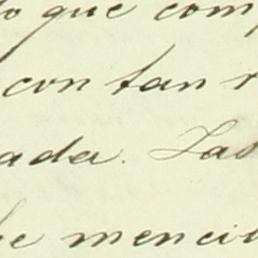 lo que comp
con tan r
ada. Las
he mencio